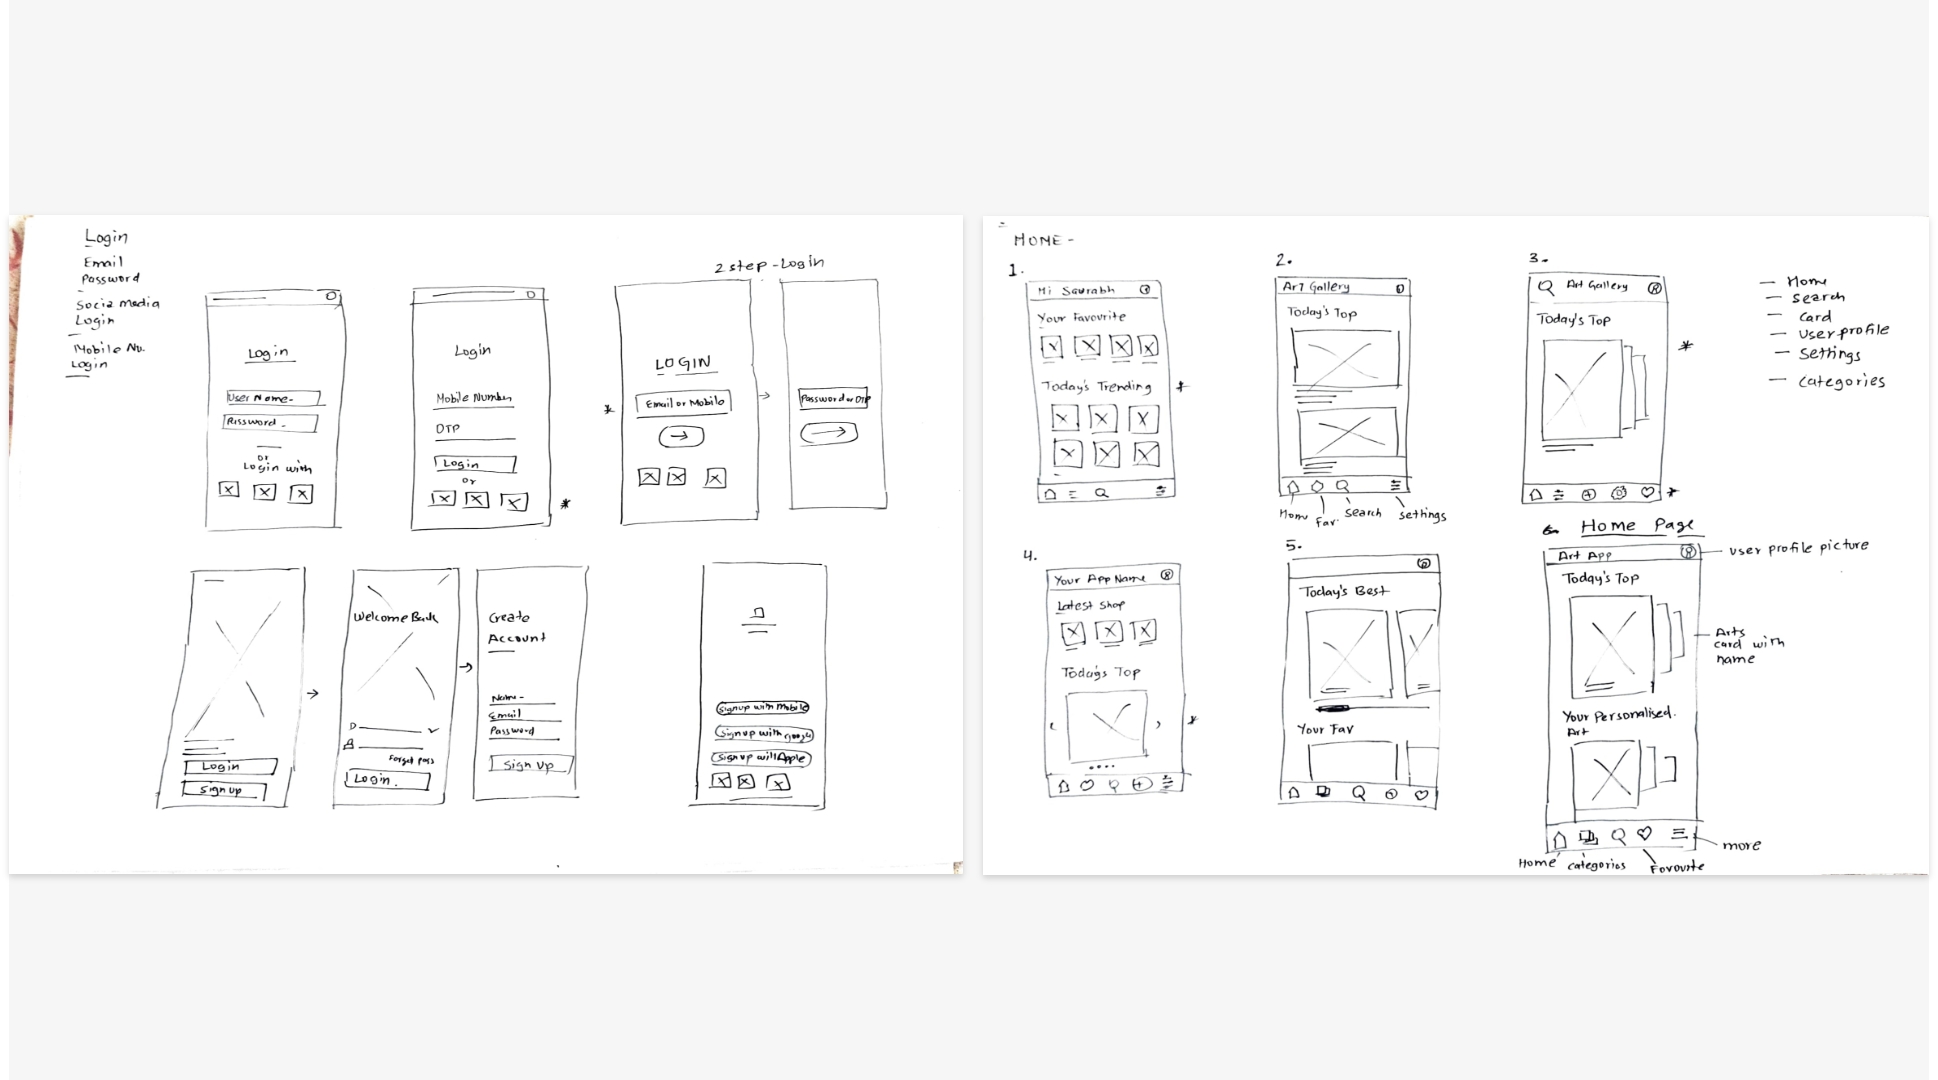 Login
Email
Password
Socia media
Login
Mobile No.
Login
Login
User Name-
Password-
or
Login with
Login
Mobile Number
OTP
Login
or
2 step - Login
LOGIN
Email or Mobile
Password or OTP
Login
Sign up
Welcome Back
Forget pass
Login
Create
Account
Name-
Email
Password
Sign Up
Signup with Mobile
Signup with google
Signup with Apple
HOME -
1.
Hi Saurabh
Your Favourite
Today's Trending
2.
Art Gallery
Today's Top
Home
Fav.
Search
settings
3.
Art Gallery
Today's Top
— Home
— search
— card
— user profile
— settings
— categories
4.
Your App Name
Latest Shop
Today's Top
5.
Today's Best
Your Fav
Home Page
Art App
user profile picture
Today's Top
Arts
card with
name
Your Personalised.
Art
more
Home
categories
Favourite